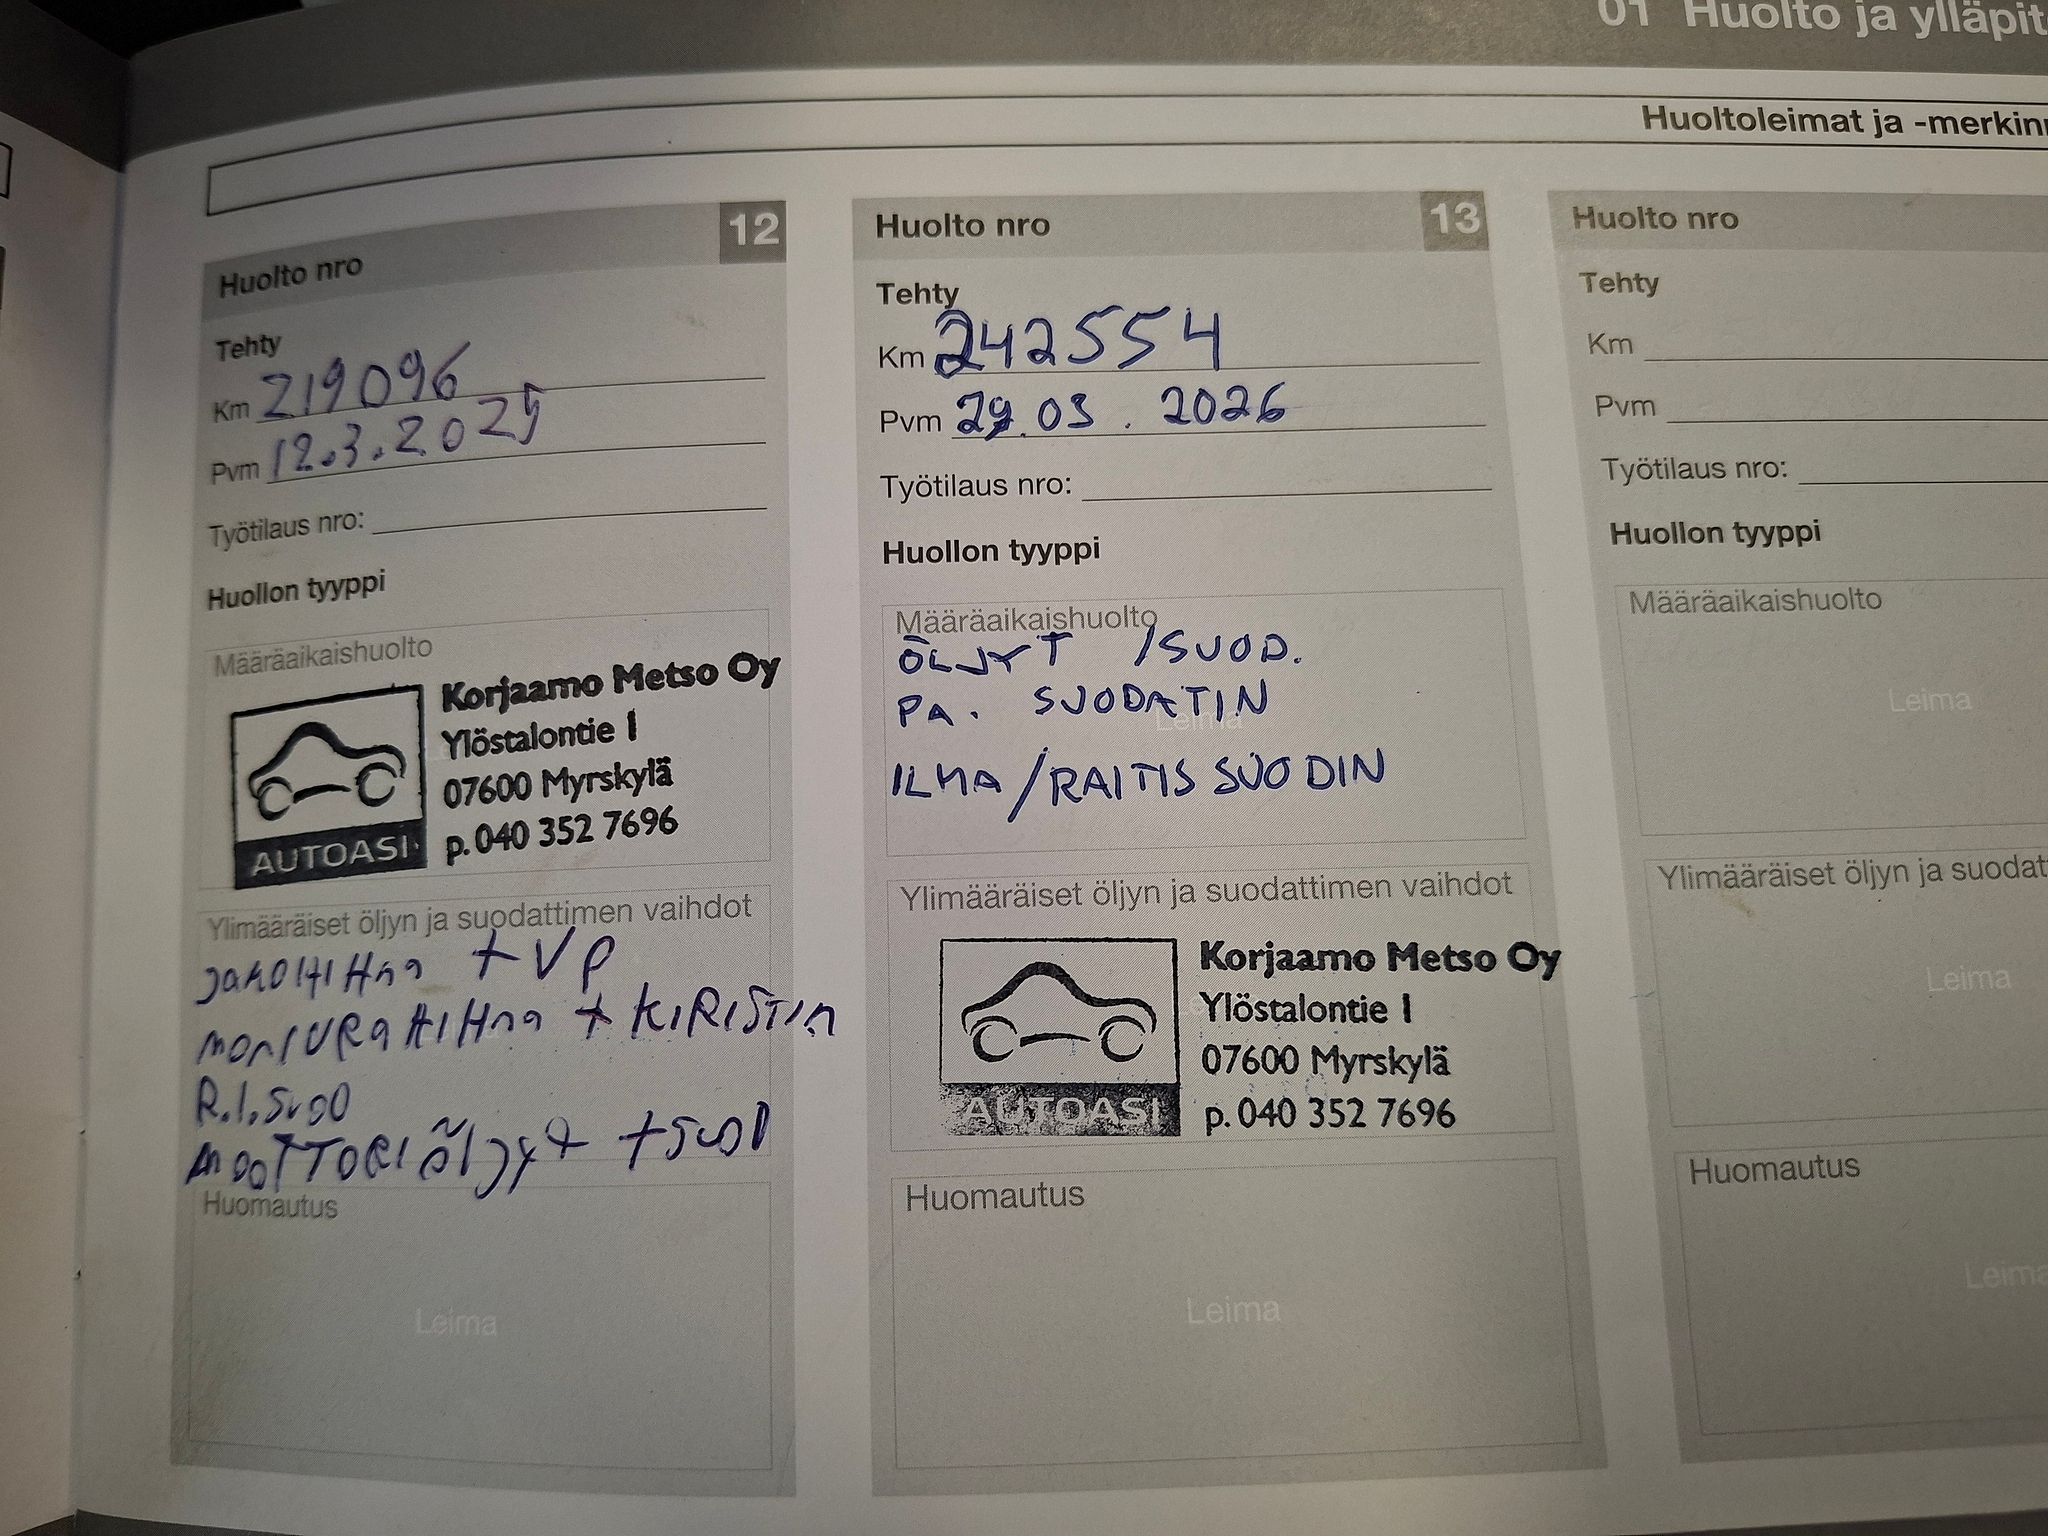 01 Huolto ja ylläpit
Huoltoleimat ja -merkinn
12
Huolto nro
Tehty
Km 219096
Pvm 12.3.2025
Työtilaus nro:
Huollon tyyppi
Määräaikaishuolto
Korjaamo Metso Oy
Ylöstalontie 1
07600 Myrskylä
p. 040 352 7696
AUTOASI
Ylimääräiset öljyn ja suodattimen vaihdot
JAKOHIHNA + VP
MONIURAHIHNA + KIRISTIN
R.I.SUOD
MOOTTORIÖLJYT + SUOD
Huomautus
Leima
Huolto nro
13
Tehty
Km 242554
Pvm 29.03.2026
Työtilaus nro:
Huollon tyyppi
Määräaikaishuolto
ÖLJYT /SUOD.
PA. SUODATIN
Leima
ILMA/RAITIS SUODIN
Ylimääräiset öljyn ja suodattimen vaihdot
Korjaamo Metso Oy
Ylöstalontie 1
07600 Myrskylä
p. 040 352 7696
AUTOASI
Huomautus
Leima
Huolto nro
Tehty
Km
Pvm
Työtilaus nro:
Huollon tyyppi
Määräaikaishuolto
Leima
Ylimääräiset öljyn ja suodat
Leima
Huomautus
Leima